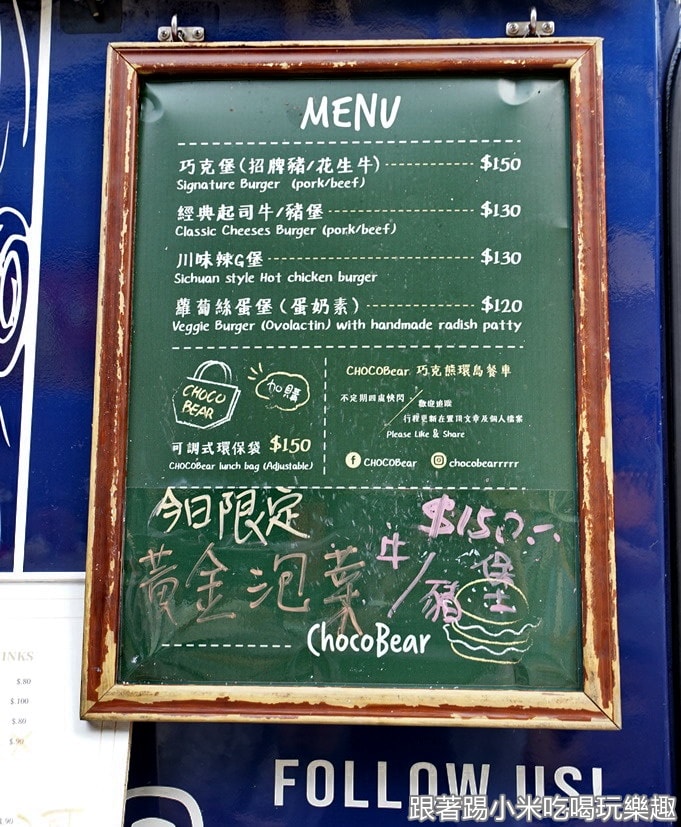 MENU
巧克堡(招牌豬/花生牛) $150
Signature Burger (pork/beef)
經典起司牛/豬堡 $130
Classic Cheeses Burger (pork/beef)
川味辣G堡 $130
Sichuan style Hot chicken burger
蘿蔔絲蛋堡(蛋奶素) $120
Veggie Burger (Ovolactin) with handmade radish patty
CHOCO BEAR
加購
可調式環保袋 $150
CHOCOBear lunch bag (Adjustable)
CHOCOBear 巧克熊環島餐車
不定期四處快閃
歡迎追蹤
行程更新在置頂文章及個人檔案
Please Like & Share
CHOCOBear chocobearrrrr
今日限定 $150.-
黃金泡菜牛/豬堡
ChocoBear
INKS
$.80
$.100
$.80
$.90
$.90
FOLLOW US!
跟著踢小米吃喝玩樂趣